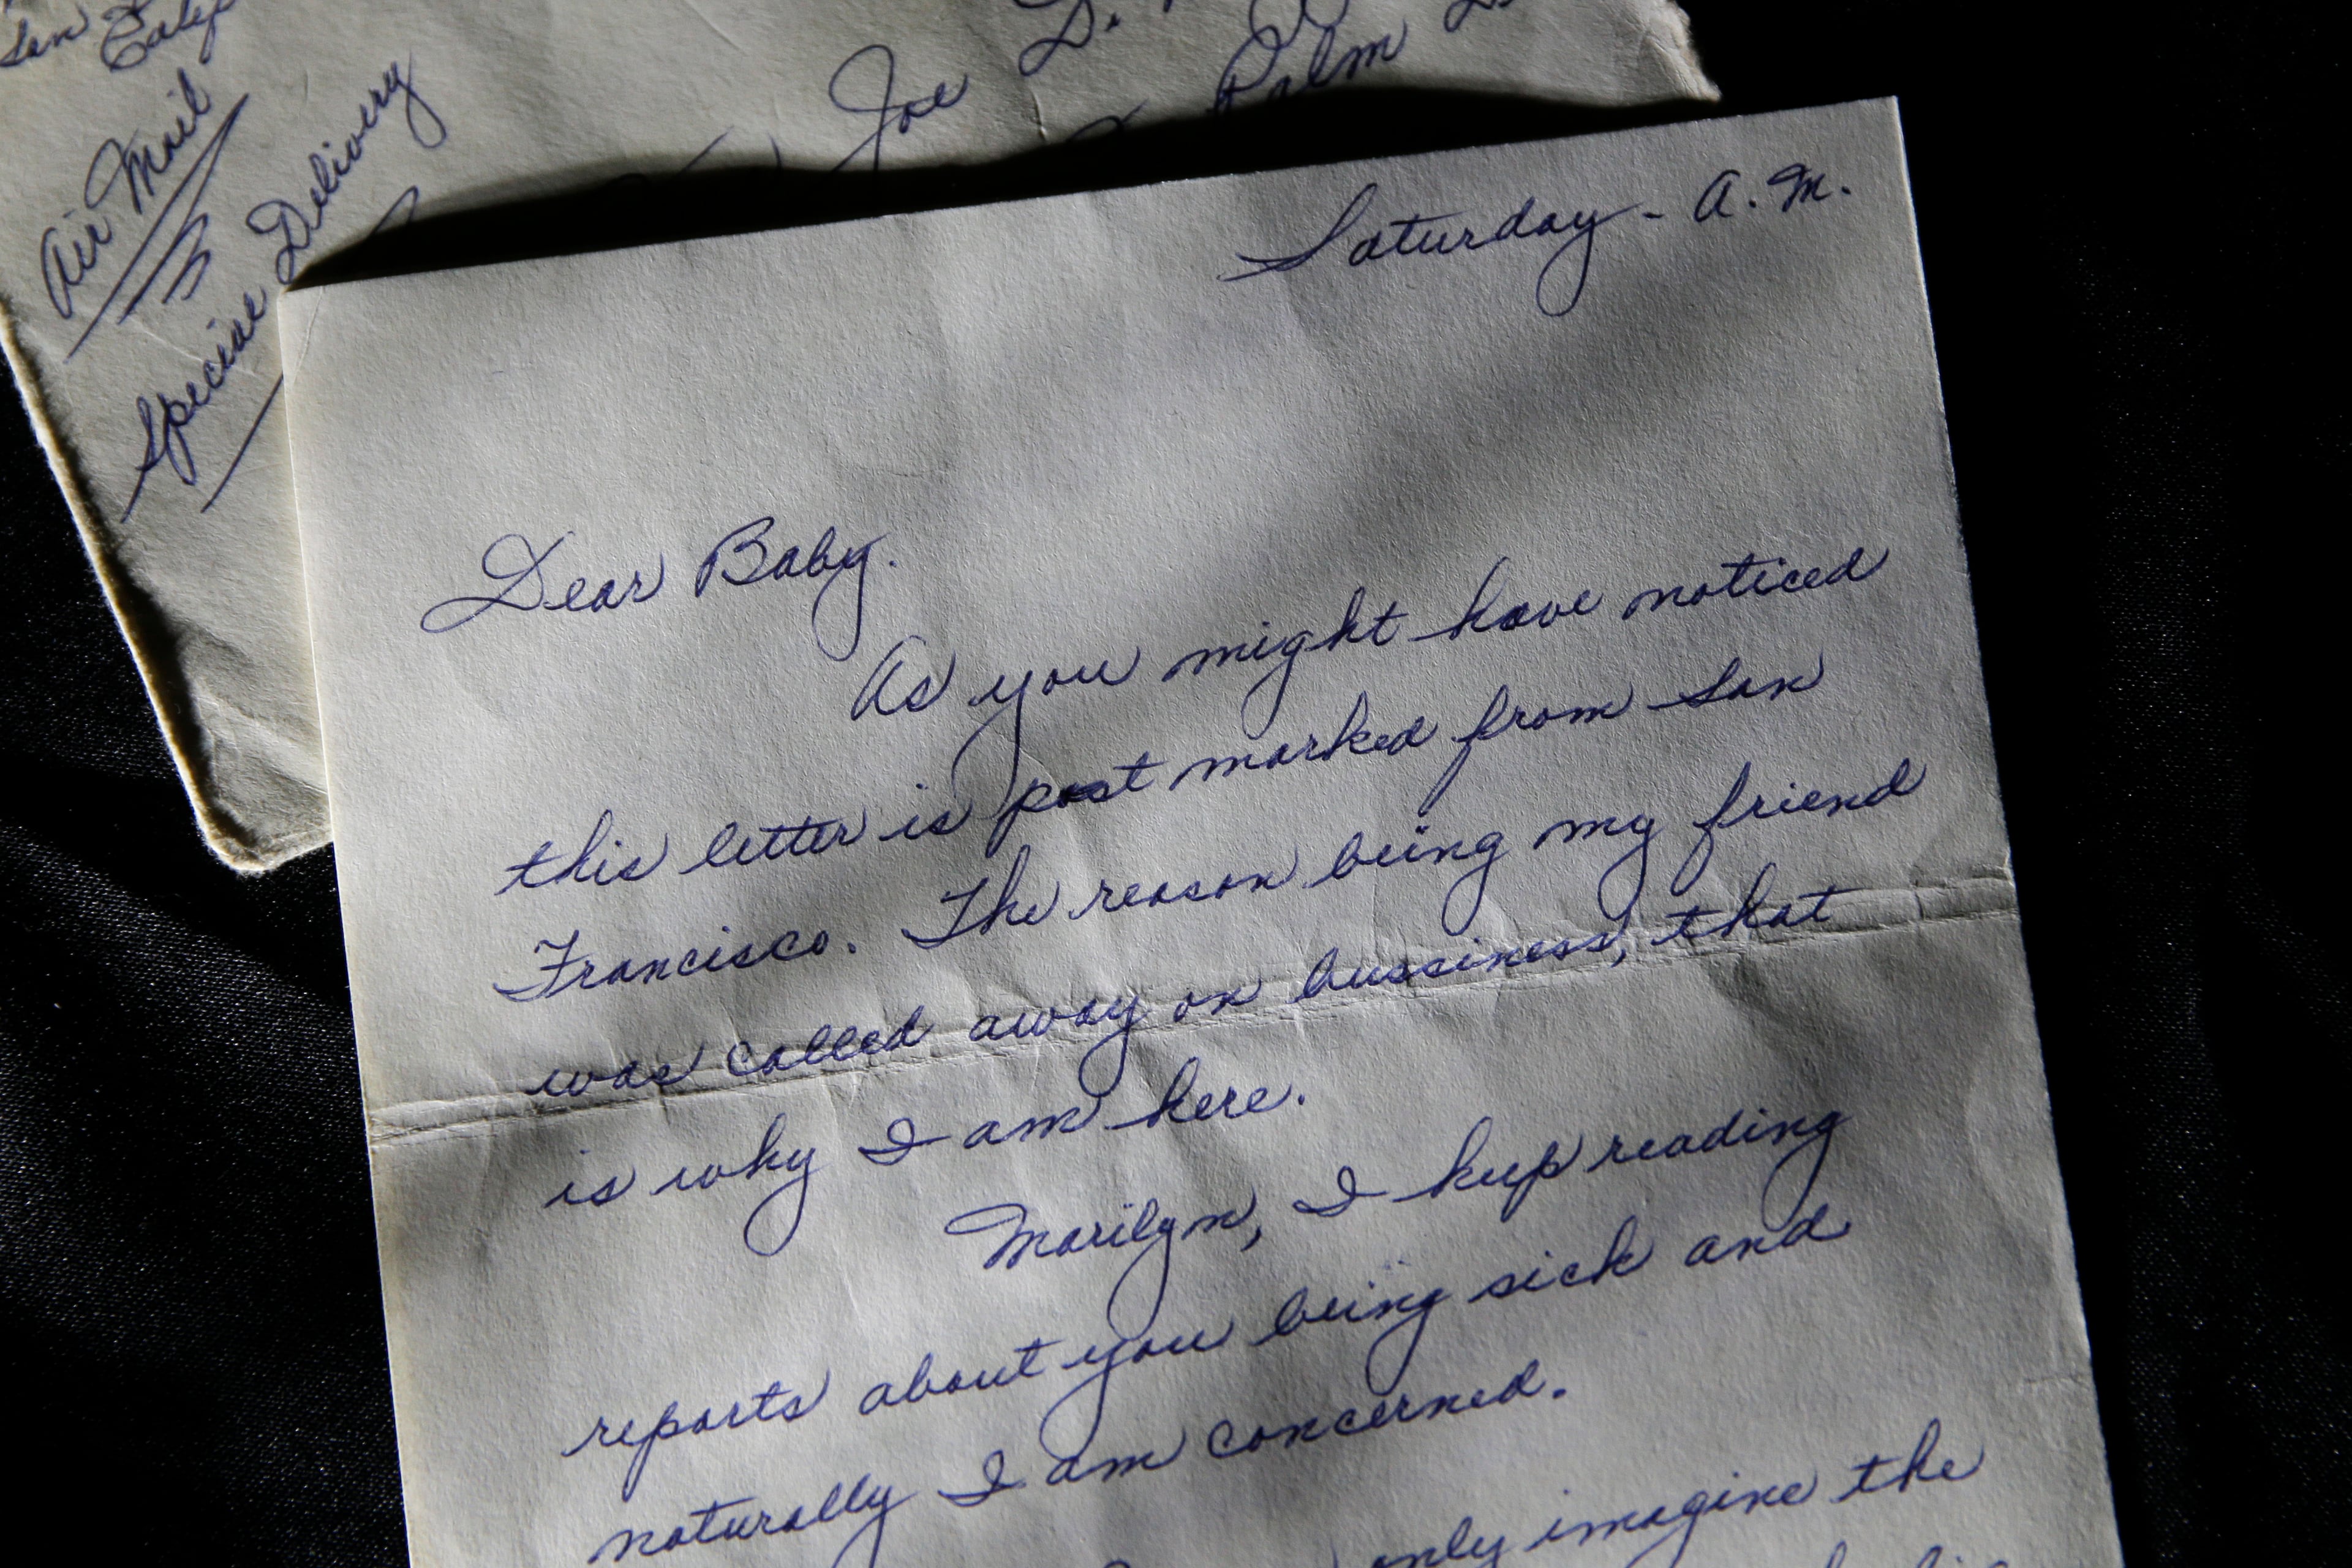 San
Calif
Air Mail
Special Delivery
Joe D.
Palm
Saturday - A.M.
Dear Baby.
As you might have noticed
this letter is post marked from San
Francisco. The reason being my friend
was called away on bussiness, that
is why I am here.
Marilyn, I keep reading
reports about you being sick and
naturally I am concerned.
only imagine the